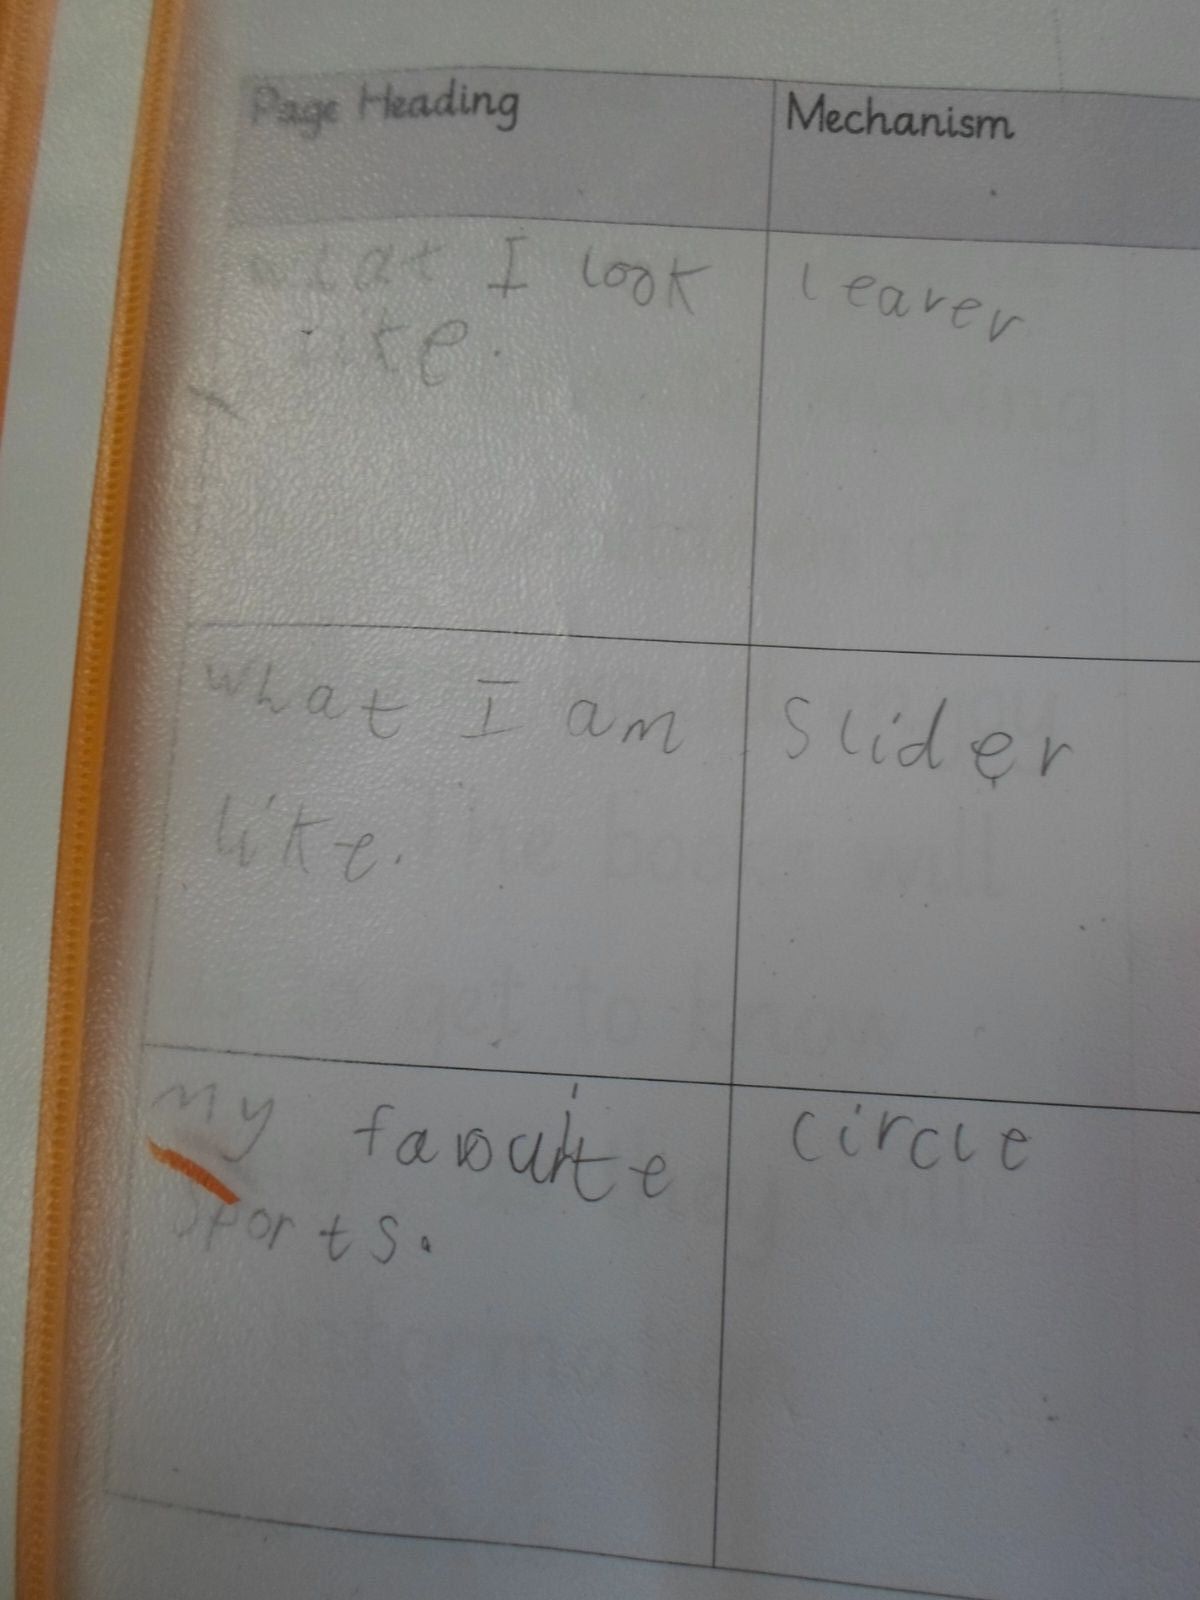 Page Heading
Mechanism
what I look
like.
leaver
what I am
like.
slider
My favourite
sports.
circle